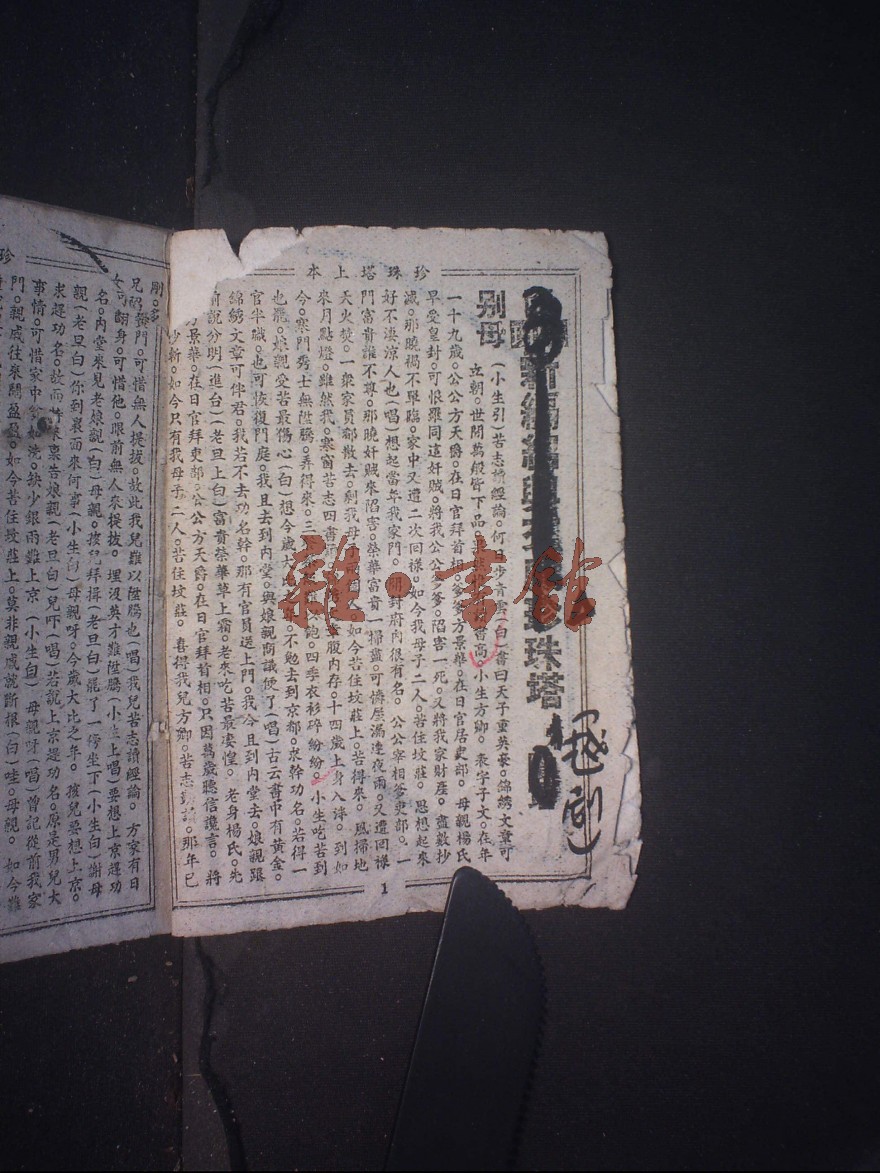 珍珠塔上本
珠塔
别母
（小生引）苦志讀經論。何日步青雲（白）書曰天子重英豪。錦綉文章可
立朝。世間萬般皆下品 書高。小生方卿。表字子文。在年
一十九歲。公公方天爵。在日官拜首相。爹爹方景華。在日官居吏部。母親楊氏
早受皇封。可恨羅同這奸賊。將我公公爹爹。陷害一死。又將我家財產。盡數抄
滅。那曉禍不單臨。家中又遭二次回祿。如今我母子二人。苦住坟莊。思想起來
好不淒涼人也（唱）想起當年我家門。開封府內很有名。公公宰相爹吏部。一
門富貴誰不尊。那曉奸賊來陷害。榮華富貴一掃盡。可憐屋漏連夜雨。又遭回祿
天火焚。一衆家員都散去。剩我母子 人。如今苦住坟莊上。苦得來。風掃地
來月點燈。雖然我。寒窗苦志四書 腹內存。十四歲上身入泮。到如
今。寒門秀士無陞騰。弄得來。三 飽。四季衣衫碎紛紛。小生吃苦到
也罷。娘親受苦最傷心（白）想今歲大比 。不勉去到京都。求幹功名。若得一
官半職。也可恢復門庭。我且去到內堂。與娘親商議便了（唱）古云書中有黃金。
錦綉文章可伴君。我若不去功名幹。那有官員送上門。我今且到內堂去。娘親跟
前說分明（進台）（老旦上白）富貴榮華草上霜。老來吃苦最淒惶。老身楊氏。先
方景華。在日官拜吏部。公公方天爵。在日官拜首相。只因萬歲聽信讒言。將
抄斬。如今只有我母子二人。苦住坟莊。喜得我兒方卿。苦志勤讀。那年已
1
珍
兄 黌門。可惜無人提拔。故此我兒難以陞騰也（唱）我兒苦志讀經論。方家有日
可翻身。可惜他。眼前無人來提拔。埋沒英才難陞騰（小生上唱）要想上京趕功
名。內堂來見老娘親（白）母親。孩兒拜揖（老旦白）罷了一傍坐下（小生白）謝母
親（老旦白）你到裏面來何事（小生白）母親呀。今歲大比之年。孩兒要想上京。
求趕功名。故而 來禀告娘親（老旦白）兒吓（唱）若說上京趕功名。原是男兒大
事情。可惜家中 如洗。缺少銀兩難上京（小生白）母親呀（唱）曾記從前我家
門。親戚往來鬧盈盈。如今苦住坟莊上。莫非親戚就斷根（白）哇。母親。如今難
雜·書館